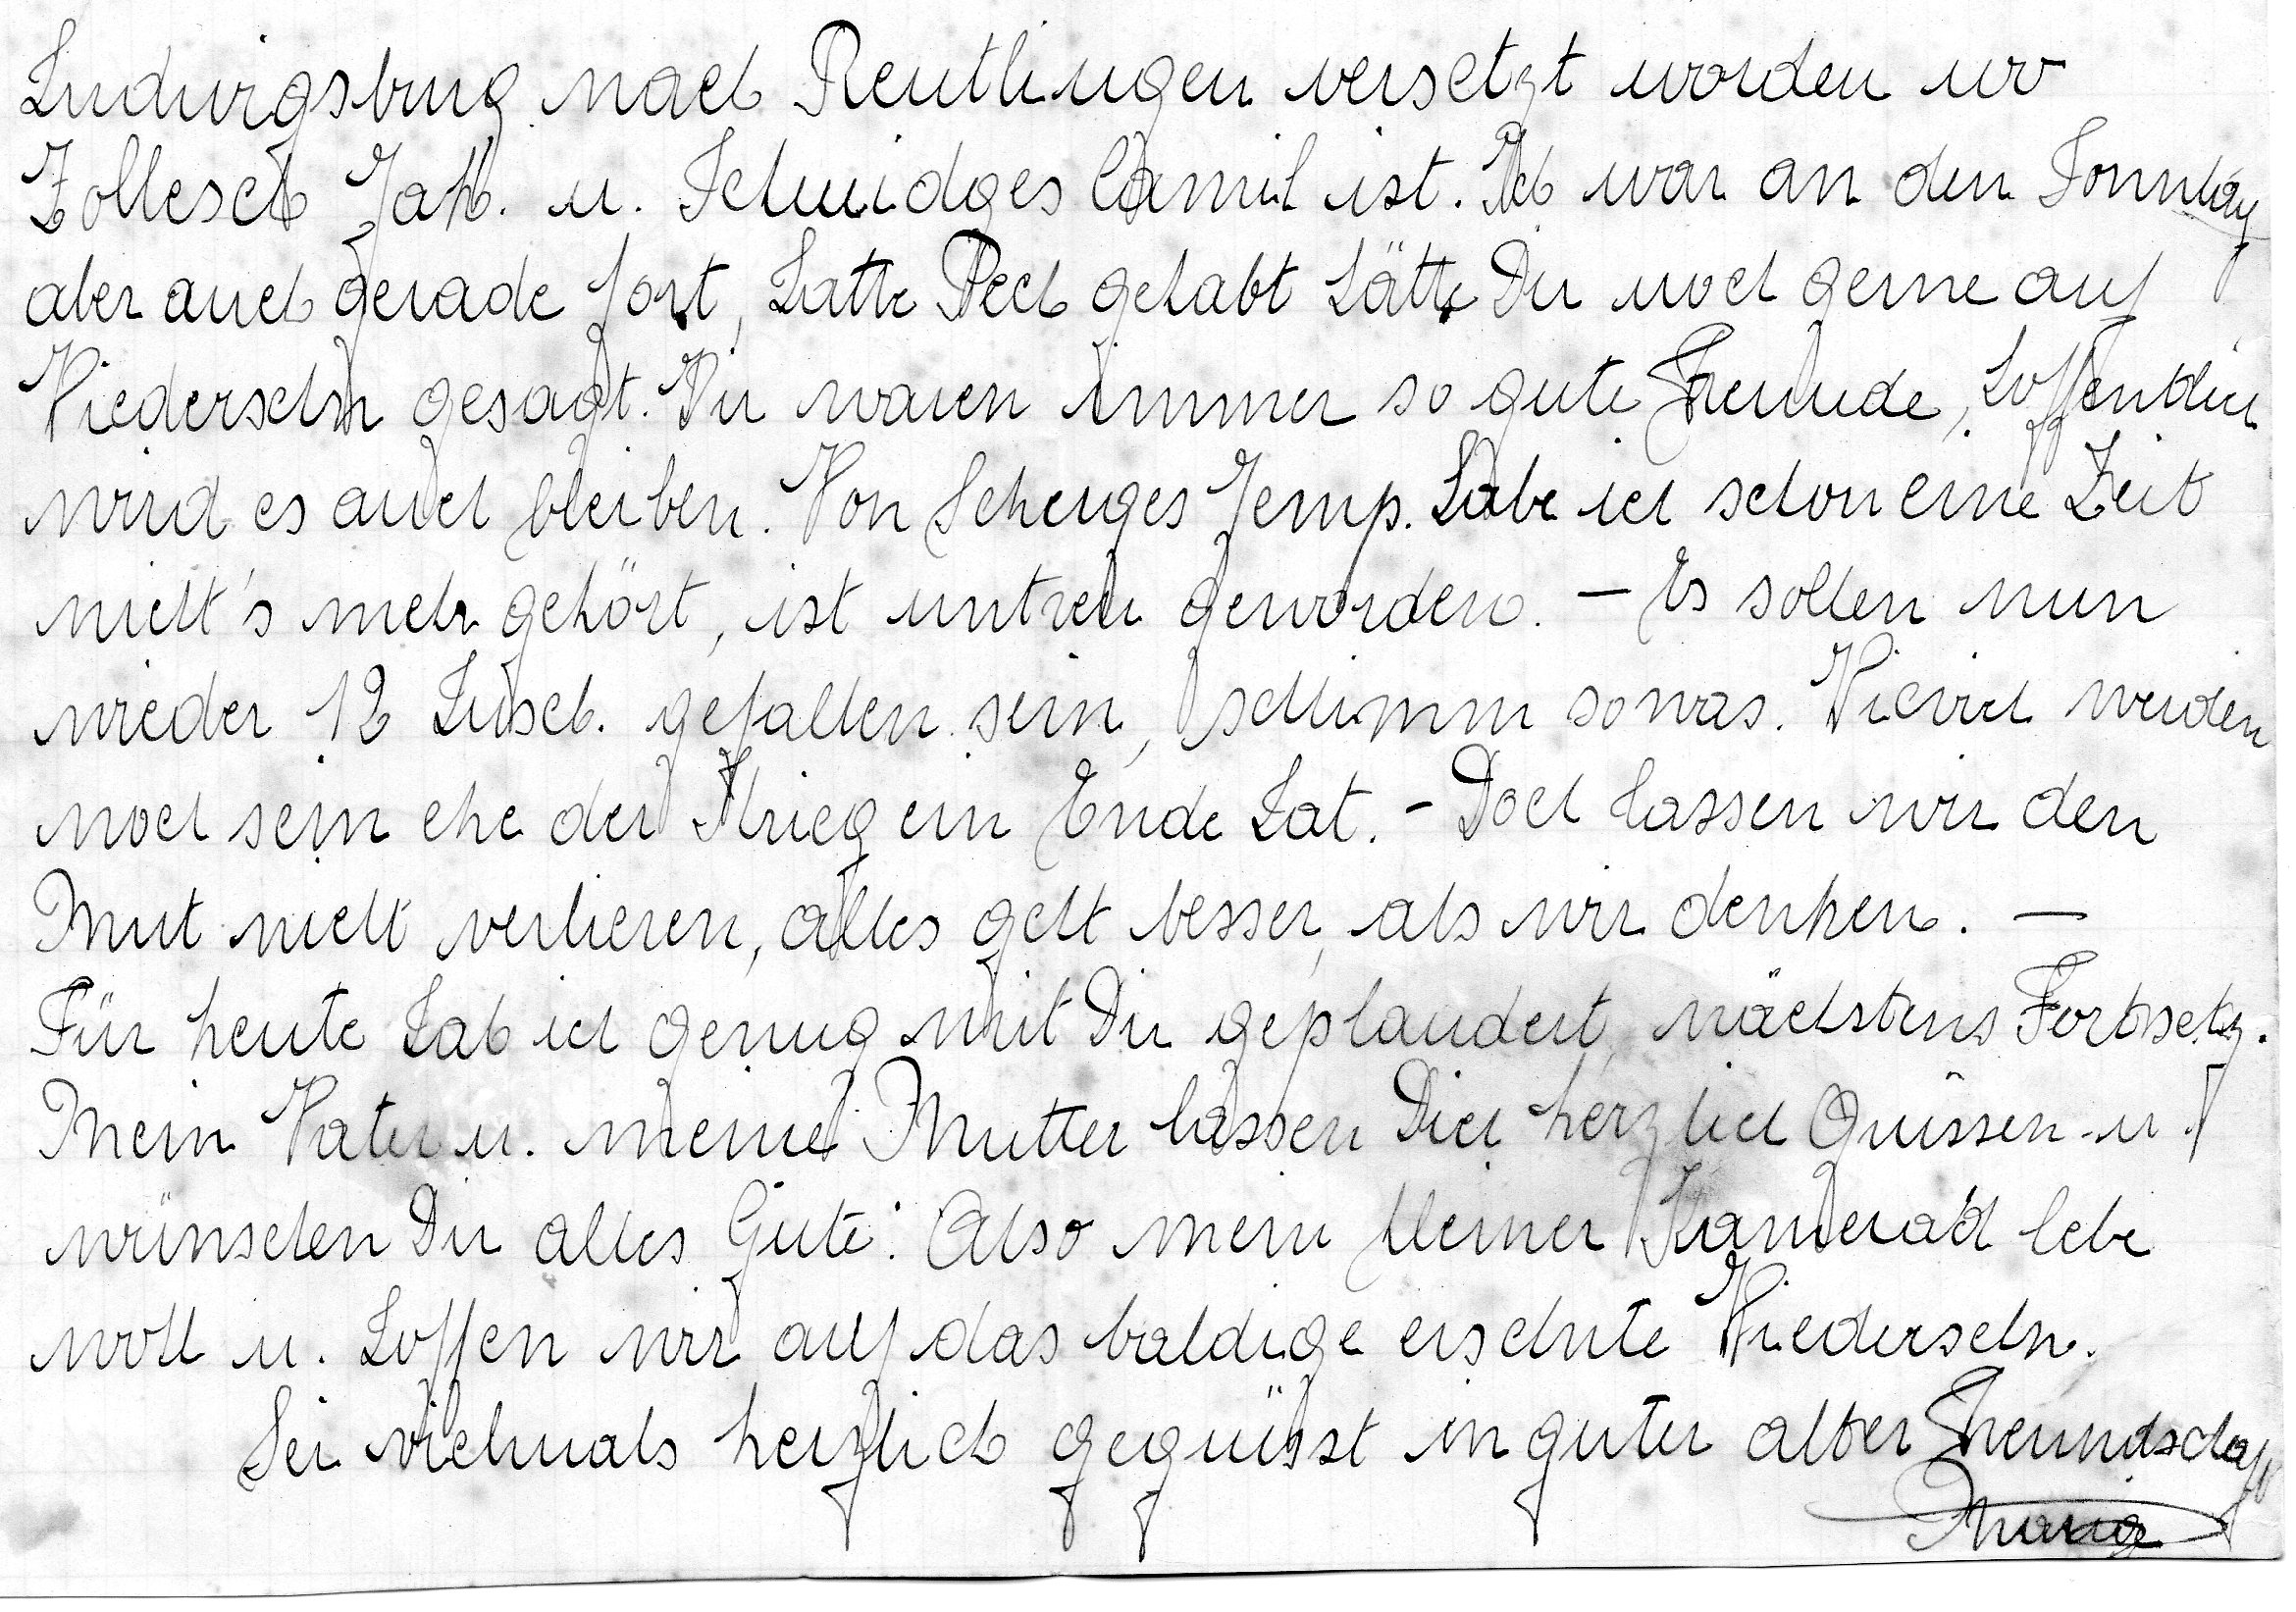 Ludwigsburg nach Reutlingen versetzt worden wo
Zollesch Jak. u. Schmidges Camil ist. Ich war an den Sonntag
aber auch gerade fort, hatte Pech gehabt hätte Dir noch gerne auf
Wiedersehn gesagt. Wir waren immer so gute Freunde, hoffentlich
wird es auch bleiben. Von Scherges Jemp. habe ich schon eine Zeit
nicht's mehr gehört, ist untreu geworden. — Es sollen nun
wieder 12 Luxeb. gefallen sein, schlimm sowas. Wieviel werden
noch sein ehe der Krieg ein Ende hat. - Doch lassen wir den
Mut nicht verlieren, alles geht besser, als wir denken. —
Für heute hab ich genug mit Dir geplaudert, nächstens Fortsetz.
Mein Vater u. meine Mutter lassen Dich herzlich Grüssen u.
wünschen Dir alles Gute. Also mein kleiner Kamerad lebe
wohl u. hoffen wir auf das baldige ersehnte Wiedersehn.
Sei vielmals herzlich gegrüsst in guter alter Freundschaft